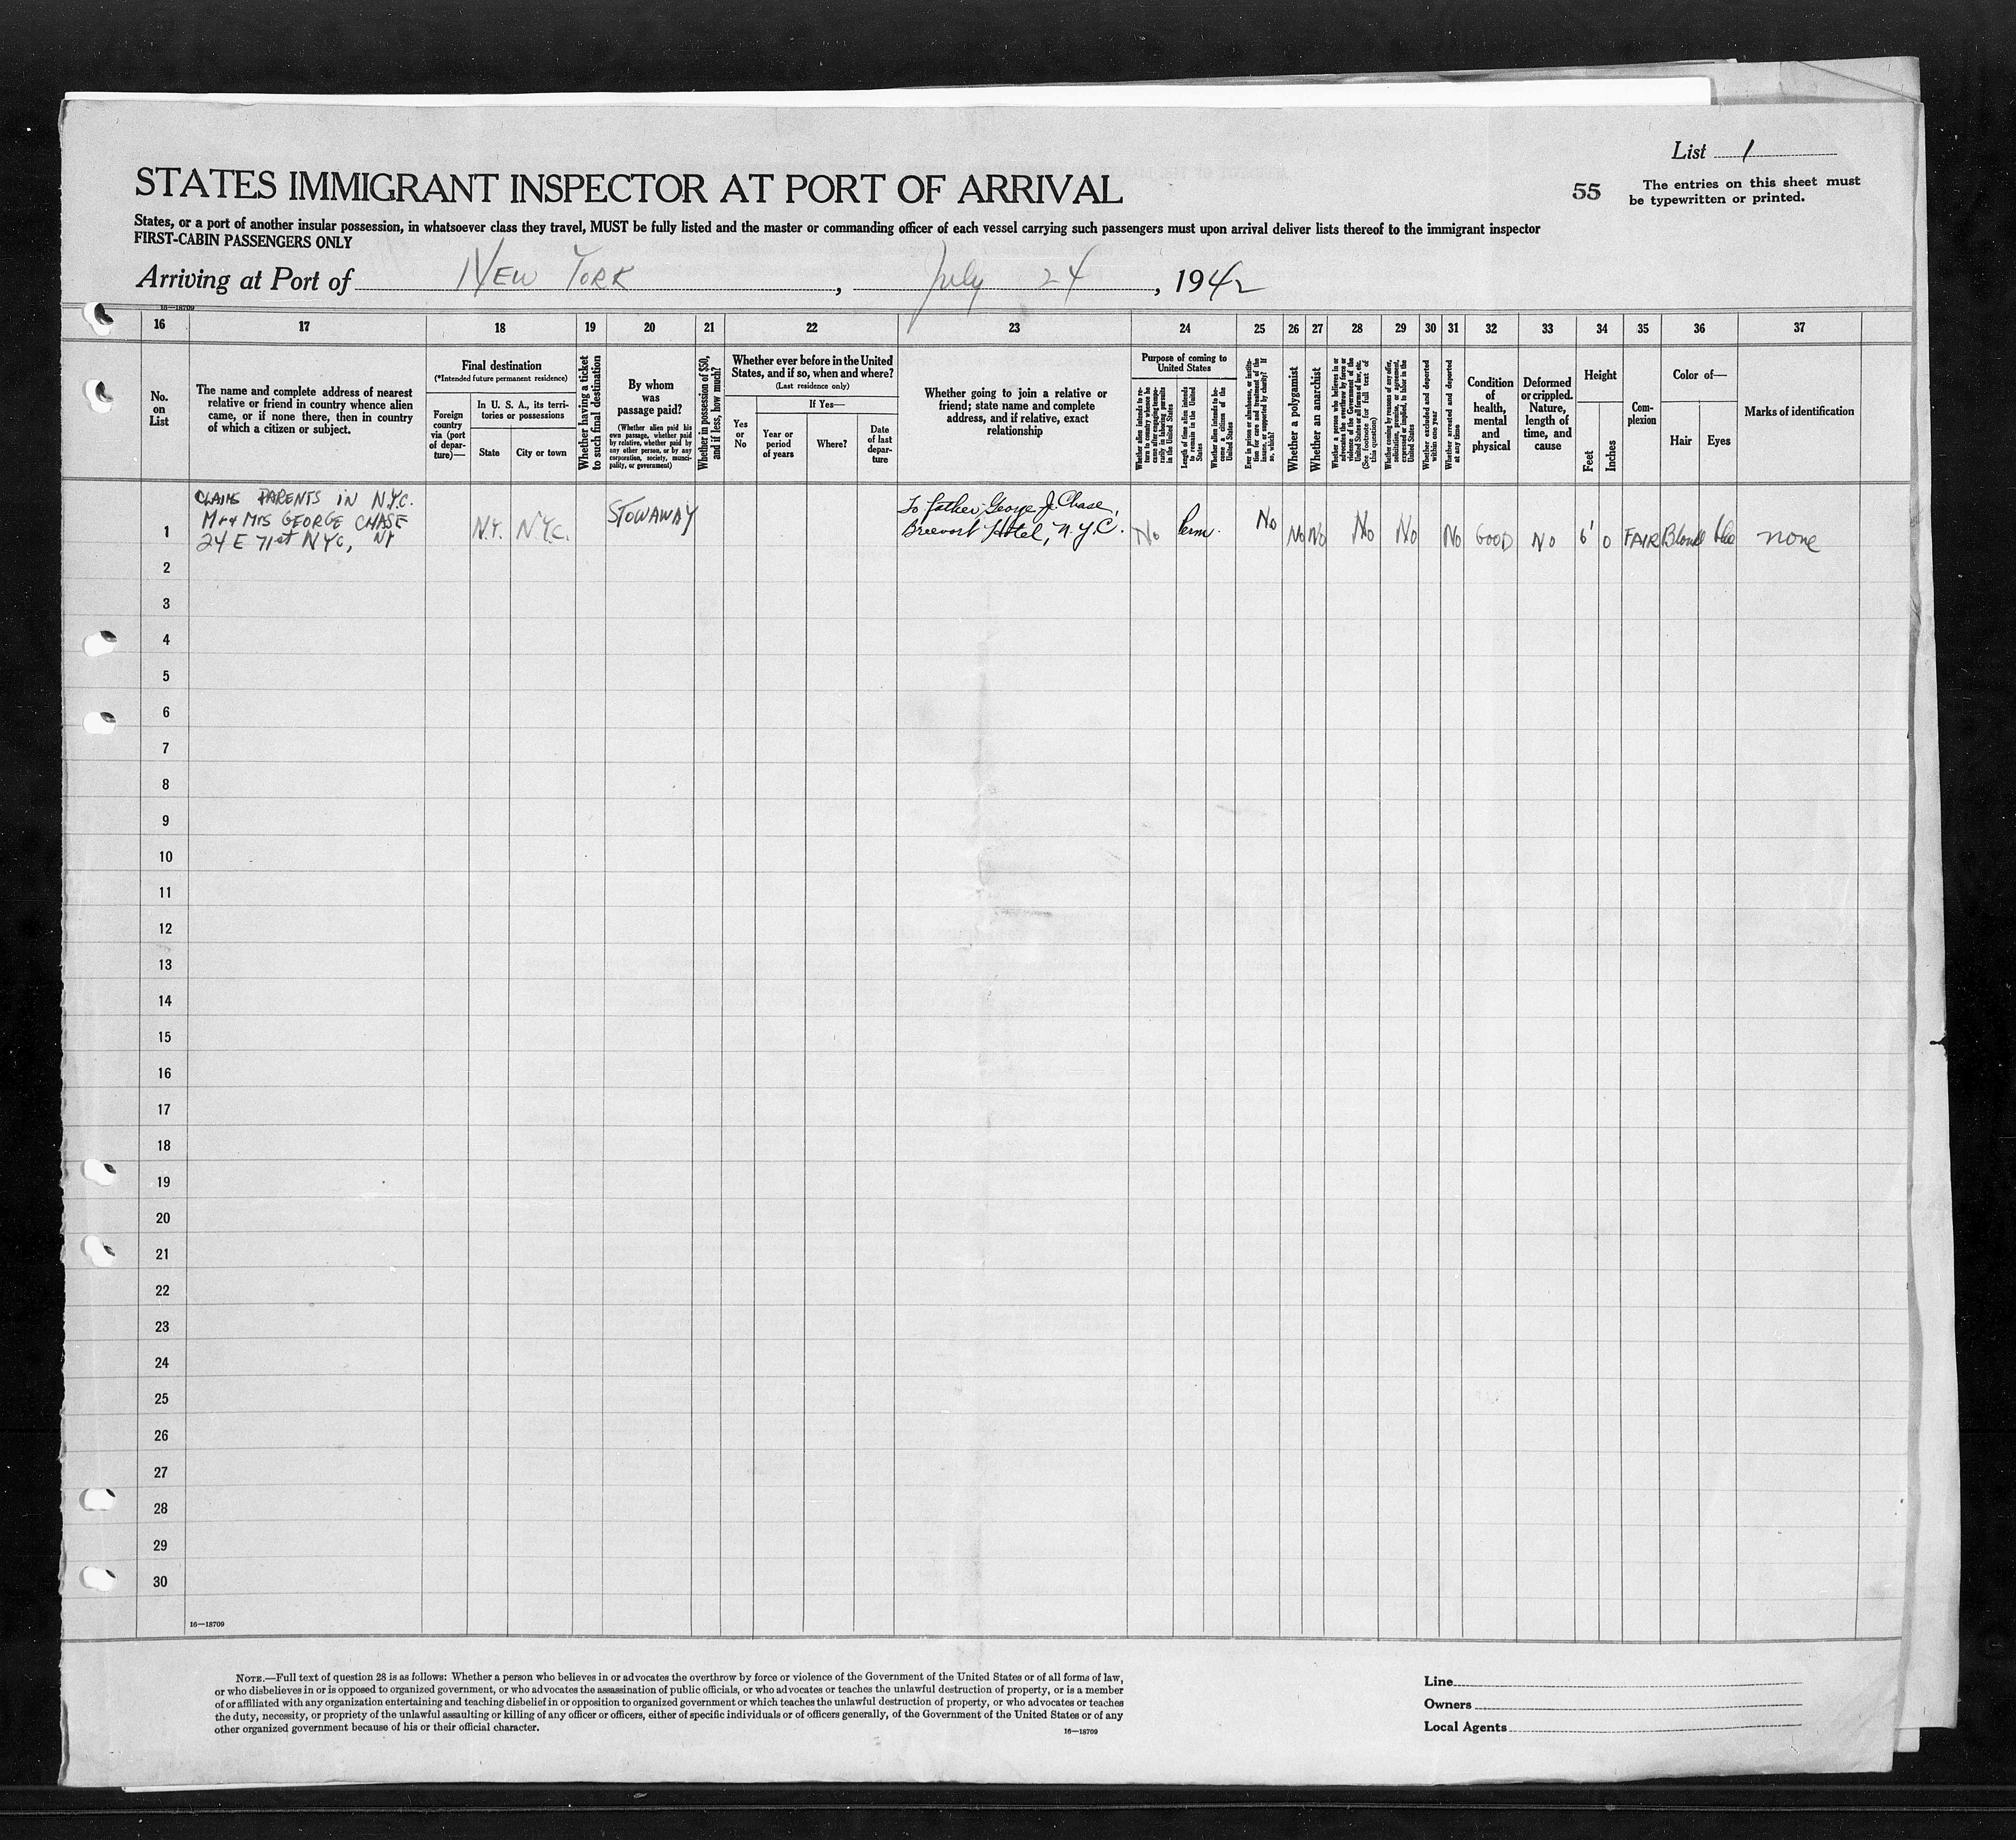 List 1
STATES IMMIGRANT INSPECTOR AT PORT OF ARRIVAL
55
The entries on this sheet must
be typewritten or printed.
States, or a port of another insular possession, in whatsoever class they travel, MUST be fully listed and the master or commanding officer of each vessel carrying such passengers must upon arrival deliver lists thereof to the immigrant inspector
FIRST-CABIN PASSENGERS ONLY
Arriving at Port of NEW YORK, July 24, 1942
16—18709
16 17 18 19 20 21 22 23 24 25 26 27 28 29 30 31 32 33 34 35 36 37
No.
on
List
The name and complete address of nearest
relative or friend in country whence alien
came, or if none there, then in country
of which a citizen or subject.
Final destination
(*Intended future permanent residence)
Foreign
country
via (port
of depar-
ture)—
In U. S. A., its terri-
tories or possessions
State
City or town
Whether having a ticket
to such final destination
By whom
was
passage paid?
(Whether alien paid his
own passage, whether paid
by relative, whether paid by
any other person, or by any
corporation, society, munici-
pality, or government)
Whether in possession of $50,
and if less, how much?
Whether ever before in the United
States, and if so, when and where?
(Last residence only)
Yes
or
No
If Yes—
Year or
period
of years
Where?
Date
of last
depar-
ture
Whether going to join a relative or
friend; state name and complete
address, and if relative, exact
relationship
Purpose of coming to
United States
Whether alien intends to re-
turn to country whence he
came after engaging tempo-
rarily in laboring pursuits
in the United States
Length of time alien intends
to remain in the United
States
Whether alien intends to be-
come a citizen of the
United States
Ever in prison or almshouse, or institu-
tion for care and treatment of the
insane, or supported by charity? If
so, which?
Whether a polygamist
Whether an anarchist
Whether a person who believes in or
advocates the overthrow by force or
violence of the Government of the
United States or all forms of law, etc.
(See footnote for full text of
this question)
Whether coming by reason of any offer,
solicitation, promise, or agreement,
expressed or implied, to labor in the
United States
Whether excluded and deported
within one year
Whether arrested and deported
at any time
Condition
of
health,
mental
and
physical
Deformed
or crippled.
Nature,
length of
time, and
cause
Height
Feet
Inches
Com-
plexion
Color of—
Hair
Eyes
Marks of identification
CLAIMS PARENTS IN N.Y.C.
Mr & Mrs GEORGE CHASE
24 E 71st NYC, NY
1
N.Y.
N.Y.C.
STOWAWAY
To father George J. Chase,
Breevort Hotel, N.Y.C.
No
Perm.
No
No
No
No
No
No
GOOD
NO
6'
0
FAIR
Blond
blue
none
2
3
4
5
6
7
8
9
10
11
12
13
14
15
16
17
18
19
20
21
22
23
24
25
26
27
28
29
30
16—18709
NOTE.—Full text of question 28 is as follows: Whether a person who believes in or advocates the overthrow by force or violence of the Government of the United States or of all forms of law,
or who disbelieves in or is opposed to organized government, or who advocates the assassination of public officials, or who advocates or teaches the unlawful destruction of property, or is a member
of or affiliated with any organization entertaining and teaching disbelief in or opposition to organized government or which teaches the unlawful destruction of property, or who advocates or teaches
the duty, necessity, or propriety of the unlawful assaulting or killing of any officer or officers, either of specific individuals or of officers generally, of the Government of the United States or of any
other organized government because of his or their official character.
16—18709
Line
Owners
Local Agents